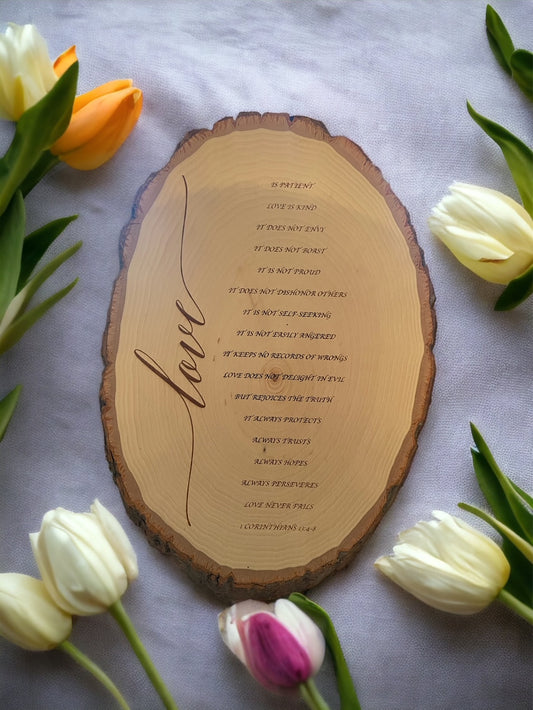 love
IS PATIENT
LOVE IS KIND
IT DOES NOT ENVY
IT DOES NOT BOAST
IT IS NOT PROUD
IT DOES NOT DISHONOR OTHERS
IT IS NOT SELF-SEEKING
IT IS NOT EASILY ANGERED
IT KEEPS NO RECORDS OF WRONGS
LOVE DOES NOT DELIGHT IN EVIL
BUT REJOICES THE TRUTH
IT ALWAYS PROTECTS
ALWAYS TRUSTS
ALWAYS HOPES
ALWAYS PERSEVERES
LOVE NEVER FAILS
1 CORINTHIANS 13:4-8